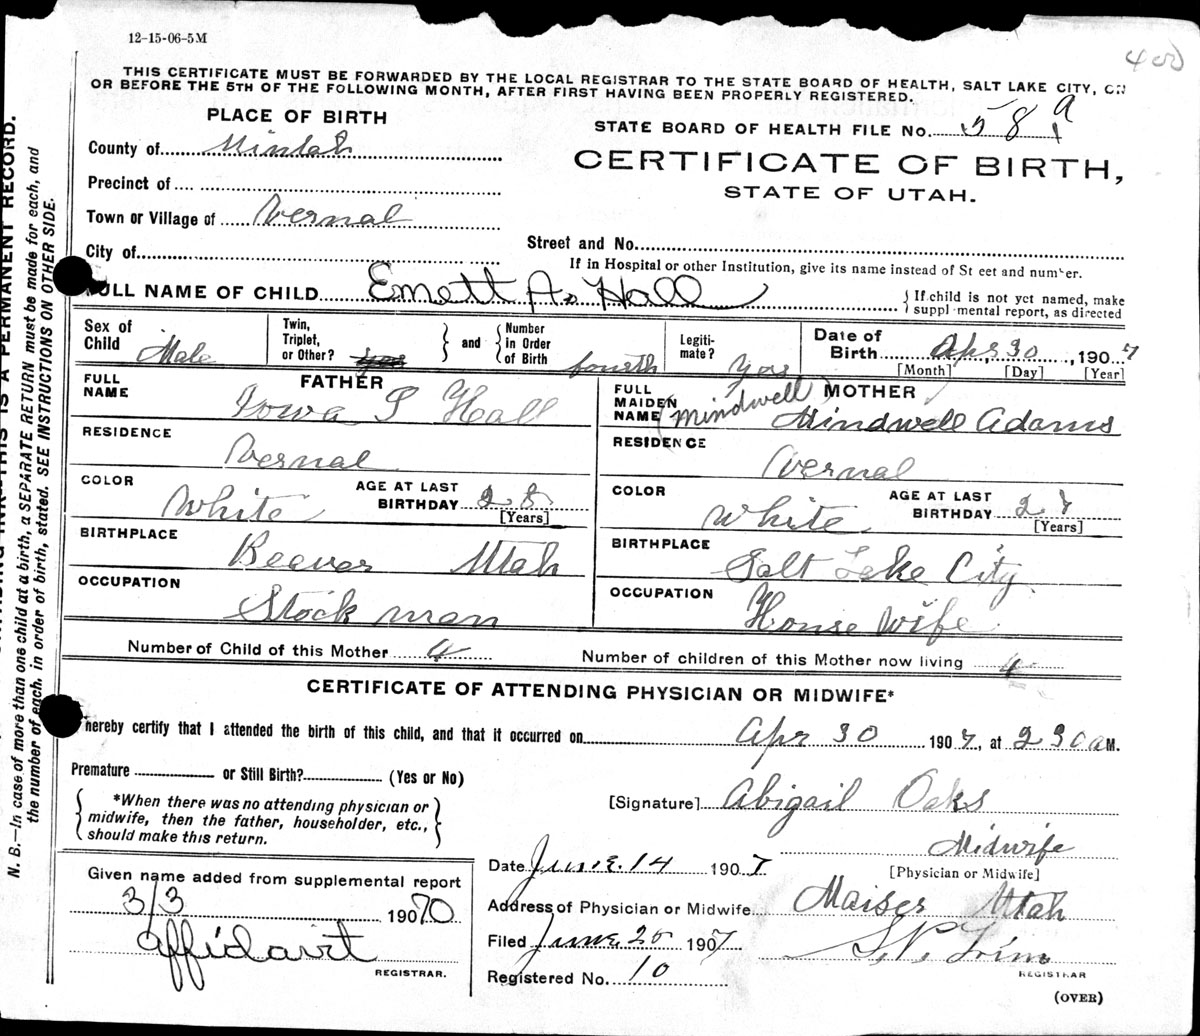 12-15-06-5M
400
THIS CERTIFICATE MUST BE FORWARDED BY THE LOCAL REGISTRAR TO THE STATE BOARD OF HEALTH, SALT LAKE CITY, ON
OR BEFORE THE 5TH OF THE FOLLOWING MONTH, AFTER FIRST HAVING BEEN PROPERLY REGISTERED.
PLACE OF BIRTH
STATE BOARD OF HEALTH FILE No. 58 a
County of
CERTIFICATE OF BIRTH,
STATE OF UTAH.
Precinct of
Town or Village of Vernal
City of
Street and No.
If in Hospital or other Institution, give its name instead of St eet and number.
FULL NAME OF CHILD Emett A. Hall
{If child is not yet named, make
suppl mental report, as directed
Sex of Child Male
Twin, Triplet, or Other?
} and { Number in Order of Birth fourth
Legiti-mate? yes
Date of Birth Apr 30, 1907
[Month] [Day] [Year]
FATHER
FULL NAME Iowa S Hall
MOTHER
FULL MAIDEN NAME (Mindwell) Mindwell Adams
RESIDENCE Vernal
RESIDENCE Vernal
COLOR White
AGE AT LAST BIRTHDAY 28
[Years]
COLOR White
AGE AT LAST BIRTHDAY 27
[Years]
BIRTHPLACE Beaver Utah
BIRTHPLACE Salt Lake City
OCCUPATION Stock man
OCCUPATION House Wife
Number of Child of this Mother 4
Number of children of this Mother now living 4
CERTIFICATE OF ATTENDING PHYSICIAN OR MIDWIFE*
hereby certify that I attended the birth of this child, and that it occurred on Apr 30 1907, at 230 a M.
Premature or Still Birth? (Yes or No)
{*When there was no attending physician or
midwife, then the father, householder, etc.,
should make this return.}
[Signature] Abigail Oaks
Midwife
[Physician or Midwife]
Given name added from supplemental report
3/3 19070
affidavit
REGISTRAR.
Date June 14 1907
Address of Physician or Midwife Maiser Utah
Filed June 25 1907
Registered No. 10
REGISTRAR
(OVER)
N. B.—In case of more than one child at a birth, a SEPARATE RETURN must be made for each, and
the number of each, in order of birth, stated. SEE INSTRUCTIONS ON OTHER SIDE.
INK—THIS IS A PERMANENT RECORD.